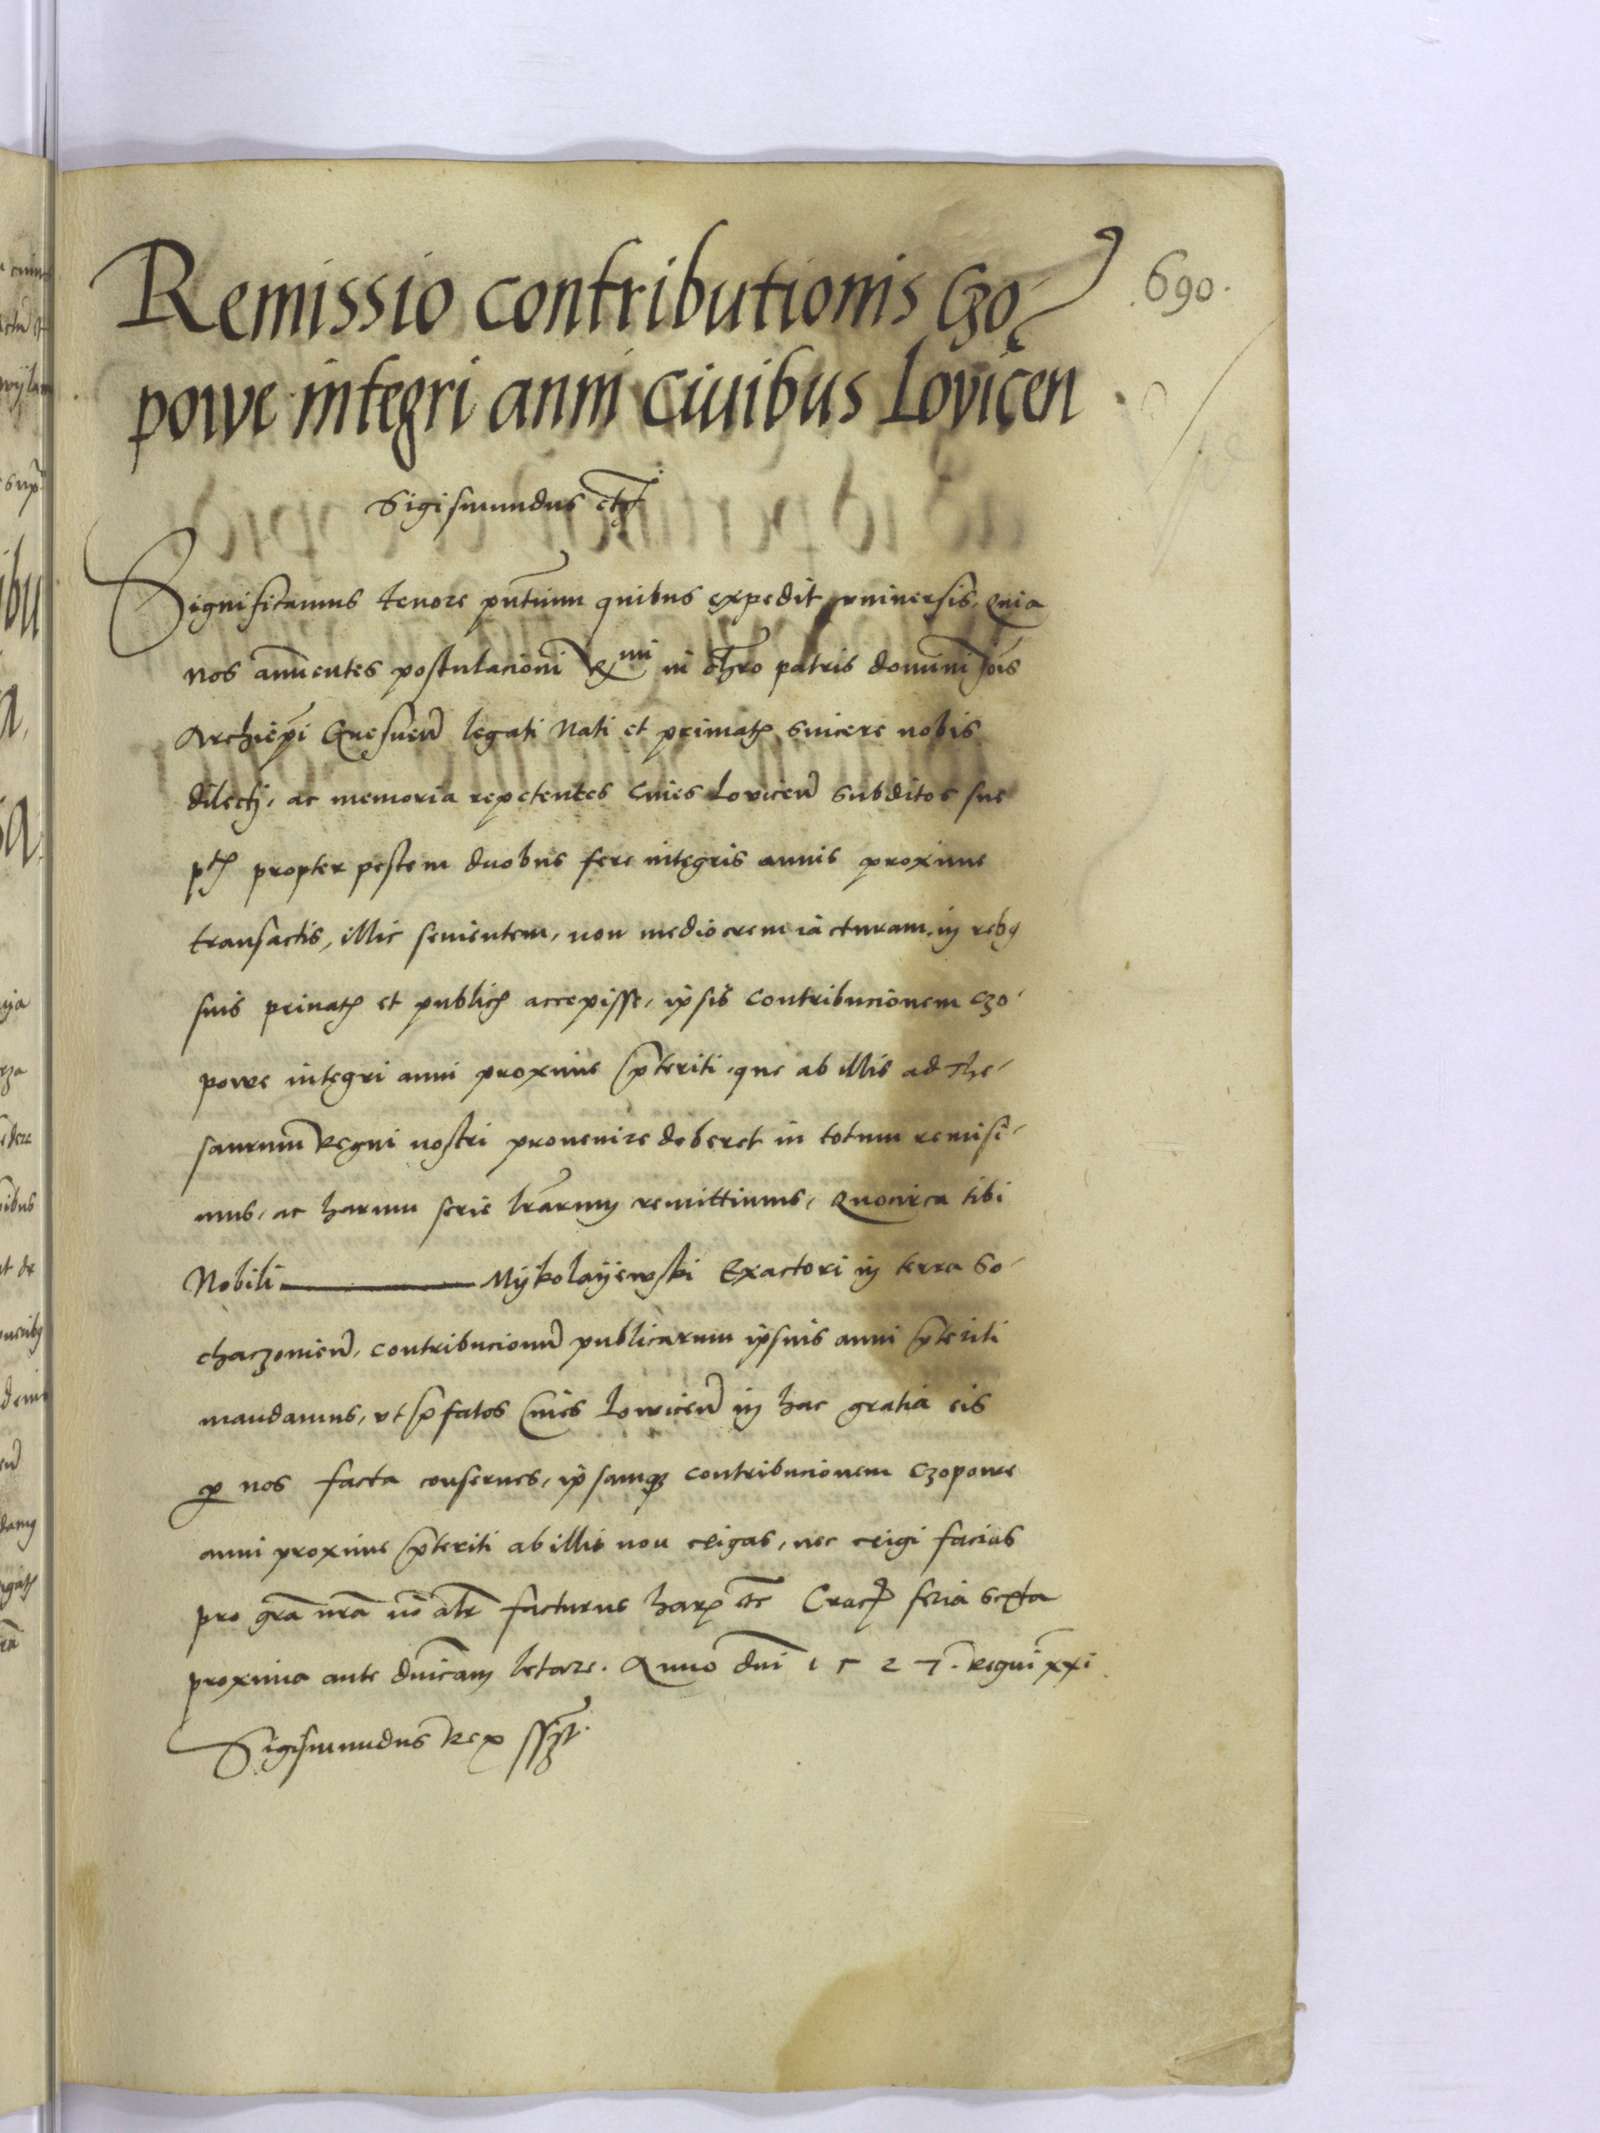 690.
Remissio contributionis Czo-
powe integri anni ciuibus Lovicen
Sigismundus etc
Significamus tenore pntium quibus expedit vniuersis. Quia
nos annuentes postulacioni R mi in Chro patris domini Jois
Archiepi Gnesnen legati Nati et primatis sincere nobis
dilecti, ac memoria repetentes Ciues Lovicen subditos sue
pter propter pestem duobus fere integris annis proxime
transactis, illic seuientem, non mediocrem iacturam in rebus
suis priuatis et publicis accepisse, ipsis contribucionem czo-
powe integri anni proxime preteriti que ab illis ad The-
saurum Regni nostri prouenire deberet in totum remisi-
mus, ac harum serie lrarum remittimus, Quocirca tibi
Nobili Mykolayewski Exactori in terra So-
chaczouien, contribucionum publicarum ipsius anni preteriti
mandamus, vt prefatos Ciues Lowicen in hac gratia eis
per nos facta conserues, ipsamque contribucionem Czopowe
anni proxime preteriti ab illis non exigas, nec exigi facias
pro gra nra no alr facturus harum etc Crac feria sexta
proxima ante dnicam letare. Anno dni 1527. Regni xxi
Sigismundus Rex sst